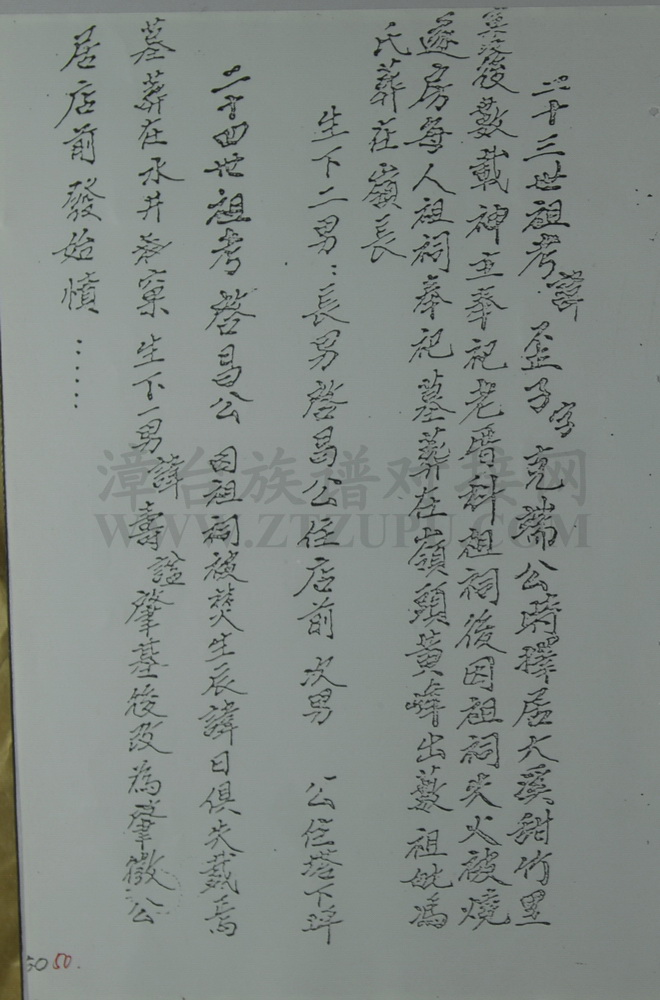 二十三世祖考諱歪子字克端公時擇居大溪甜竹里
後數載神主奉祀老厝科祖祠後因祖祠失火被燒
遂房每人祖祠奉祀墓葬在嶺頭黃峰出藪祖妣馮
氏葬在嶺長
生下二男:長男啓昌公住店前次男 公住塔下坪
二十四世祖考啓昌公因祖祠被焚生辰諱日俱失載焉
墓葬在水井窠生下一男諱壽諡肇基後改為肇徽公
居店前發始憤……
漳台族谱对接网
WWW.ZTZUPU.COM
50 50.